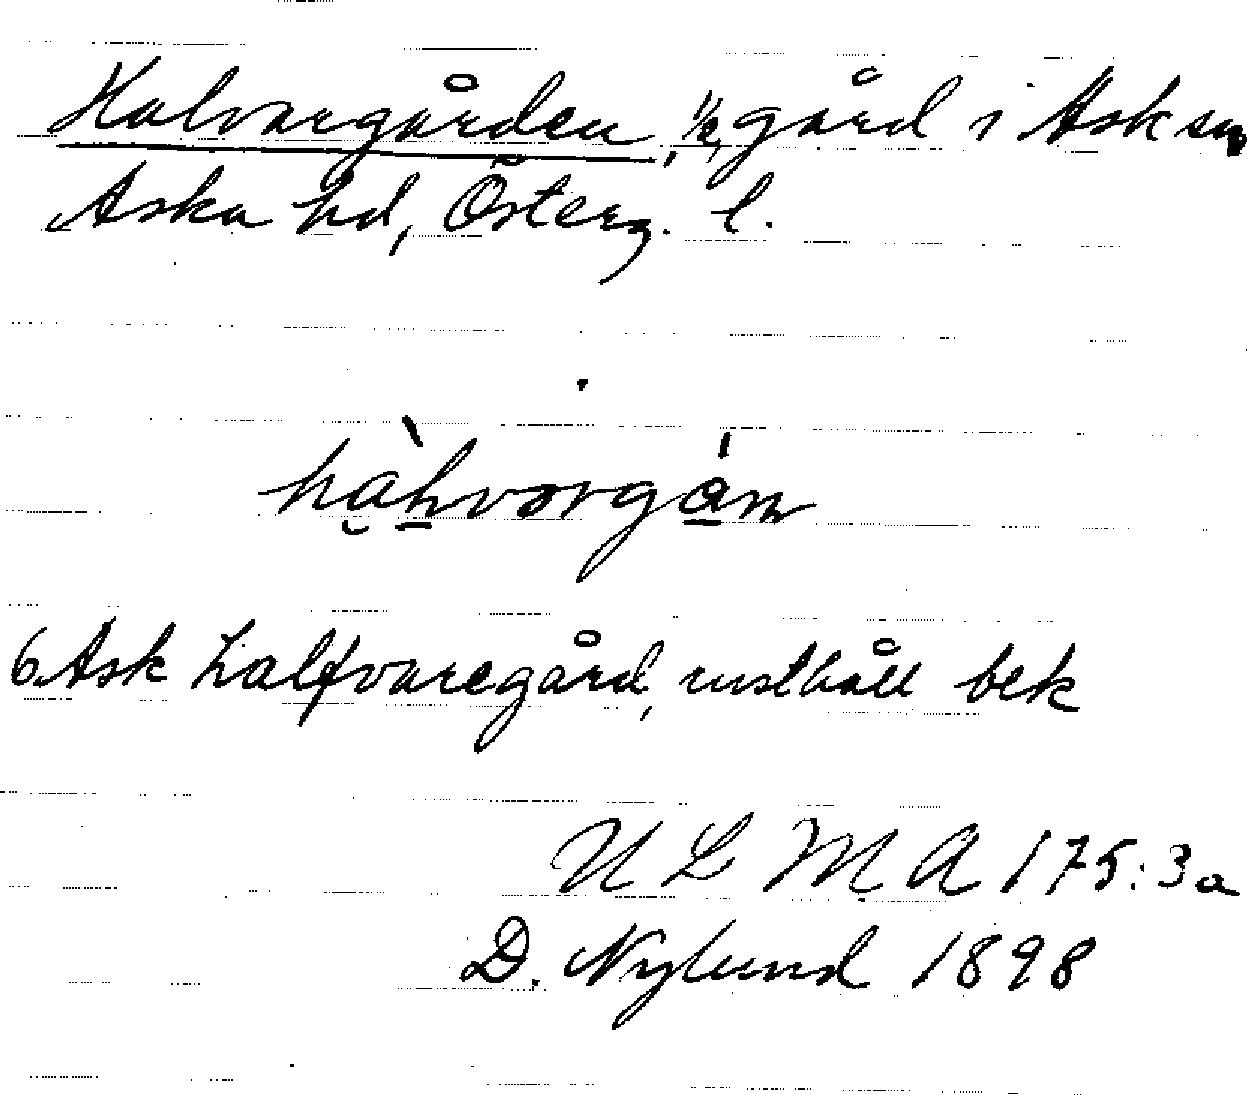 Halvargården, 1/2 gård i Ask sn
Aska hd, Österg. l.
6 Ask halfvaregård, rusthåll bek
U L M A 175:3a
D. Nylund 1898